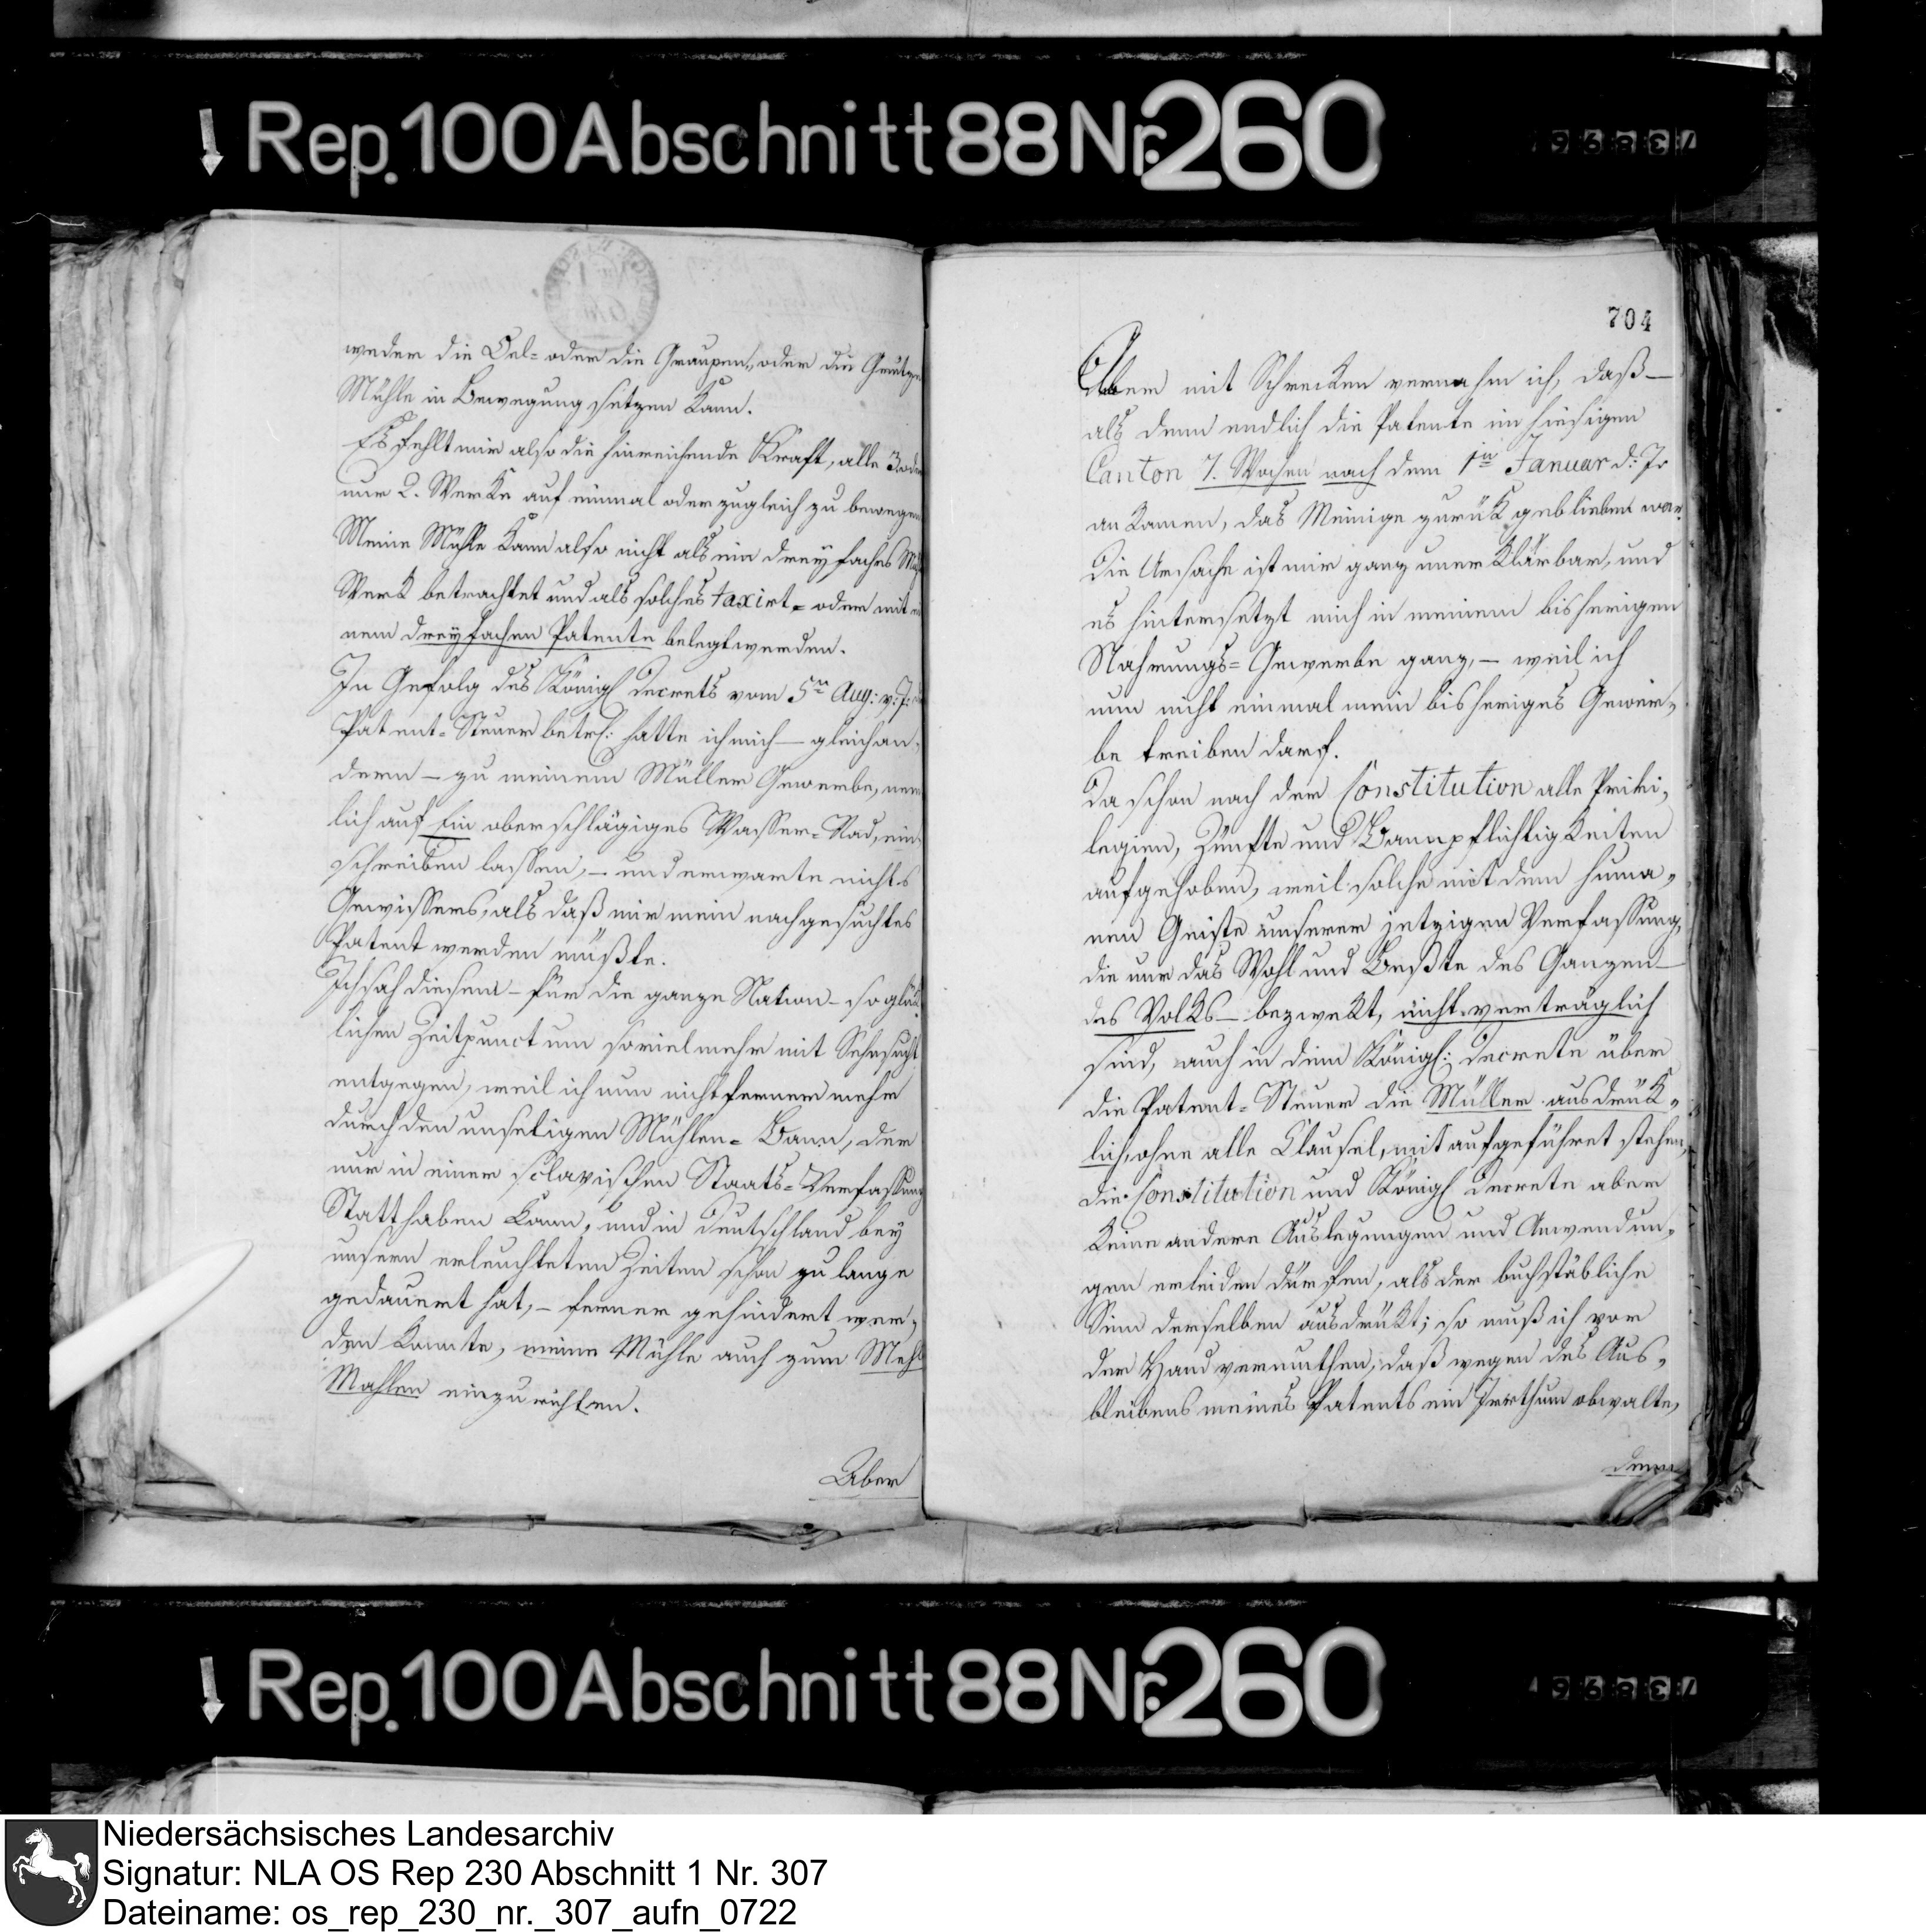 Rep. 100 Abschnitt 88 Nr. 260
weder die Oel- oder die Graupen- oder die Grütze
Mühle in Bewegung setzen kann.
Es fehlt mir also die hinreichende Kraft, alle 3 oder
nur 2. Werke auf einmal oder zugleich zu bewegen
Meine Mühle kann also nicht als ein dreyfaches
Werk betrachtet und als solches taxirt - oder mit
nem dreyfachen Patente belegt werden.
In Gefolg des Königl Decrets vom 5ten Aug: v: J:
Patent-Steuer betrf: hatte ich mich — gleich an-
dern — zu meinem Müller Gewerbe, nem
lich auf Ein oberschlägiges Wasser-Rad, ein
schreiben lassen, — und erwarte nichts
Gewissers, als daß mir mein nachgesuchtes
Patent werden müßte.
Ich sah diesem — für die ganze Nation — so glük
lichen Zeitpunct um sovielmehr mit Sehnsucht
entgegen, weil ich nun nicht ferner mehr
durch den unseligen Mühlen-Bann, der
nur in einer sclavischen Staats-Verfassung
Statt haben kann, und in Deutschland bey
unsern erleuchteten Zeiten schon zu lange
gedauert hat, — ferner gehindert wer-
den konnte, meine Mühle auch zum Mehl
Mahlen einzurichten.
Aber
704
Aber mit Schrecken vernahm ich, daß —
als denn endlich die Patente im hiesigen
Canton 7. Wochen nach dem 1ten Januar d: Jr
ankamen, das Meinige zurük geblieben war.
Die Ursache ist mir ganz unerklärbar, und
es hintersetzt mich in meinem bisherigen
Nahrungs-Gewerbe ganz, — weil ich
nun nicht einmal mein bisheriges Gewer-
be treiben darf.
Da schon nach der Constitution alle Privi-
legien, Zünfte und Bannpflichtigkeiten
aufgehoben, weil solche mit dem huma-
nen Geiste unserer jetzigen Verfassung,
die nur das Wohl und Beßte des Ganzen —
des Volks — bezwekt, nicht verträglich
sind, auch in dem Königl: Decrete über
die Patent-Steuer die Müller ausdrük-
lich, ohne alle Clausel, mit aufgeführet stehen,
die Constitution und Königl Decrete aber
keine andere Auslegungen und Anwendun-
gen erleiden dürfen, als der buchstäbliche
Sinn derselben ausdrükt; so muß ich vor
der Hand vermuthen, daß wegen des Aus-
bleibens meines Patents ein Irrthum obwalte,
denn
Rep. 100 Abschnitt 88 Nr. 260
Niedersächsisches Landesarchiv
Signatur: NLA OS Rep 230 Abschnitt 1 Nr. 307
Dateiname: os_rep_230_nr._307_aufn_0722